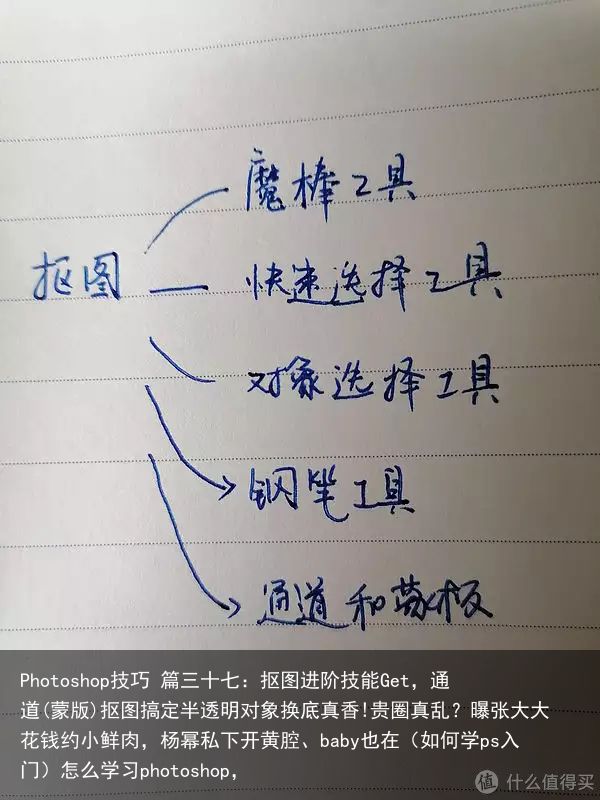 魔棒工具
抠图
快速选择工具
对象选择工具
钢笔工具
通道和蒙板
Photoshop技巧 篇三十七：抠图进阶技能Get，通
道(蒙版)抠图搞定半透明对象换底真香!贵圈真乱？曝张大大
花钱约小鲜肉，杨幂私下开黄腔、baby也在（如何学ps入
门）怎么学习photoshop，
值 什么值得买